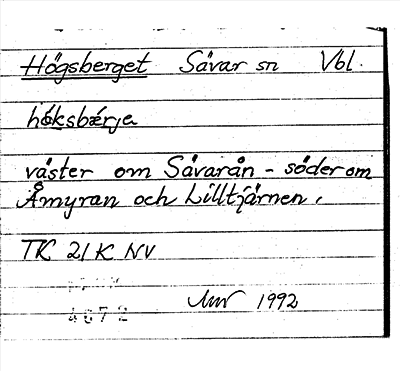 Högsberget Sävar sn Vbl.
höksbǽrja
väster om Sävarån - söder om
Åmyran och Lilltjärnen.
TK 21 K NV
1992
4672